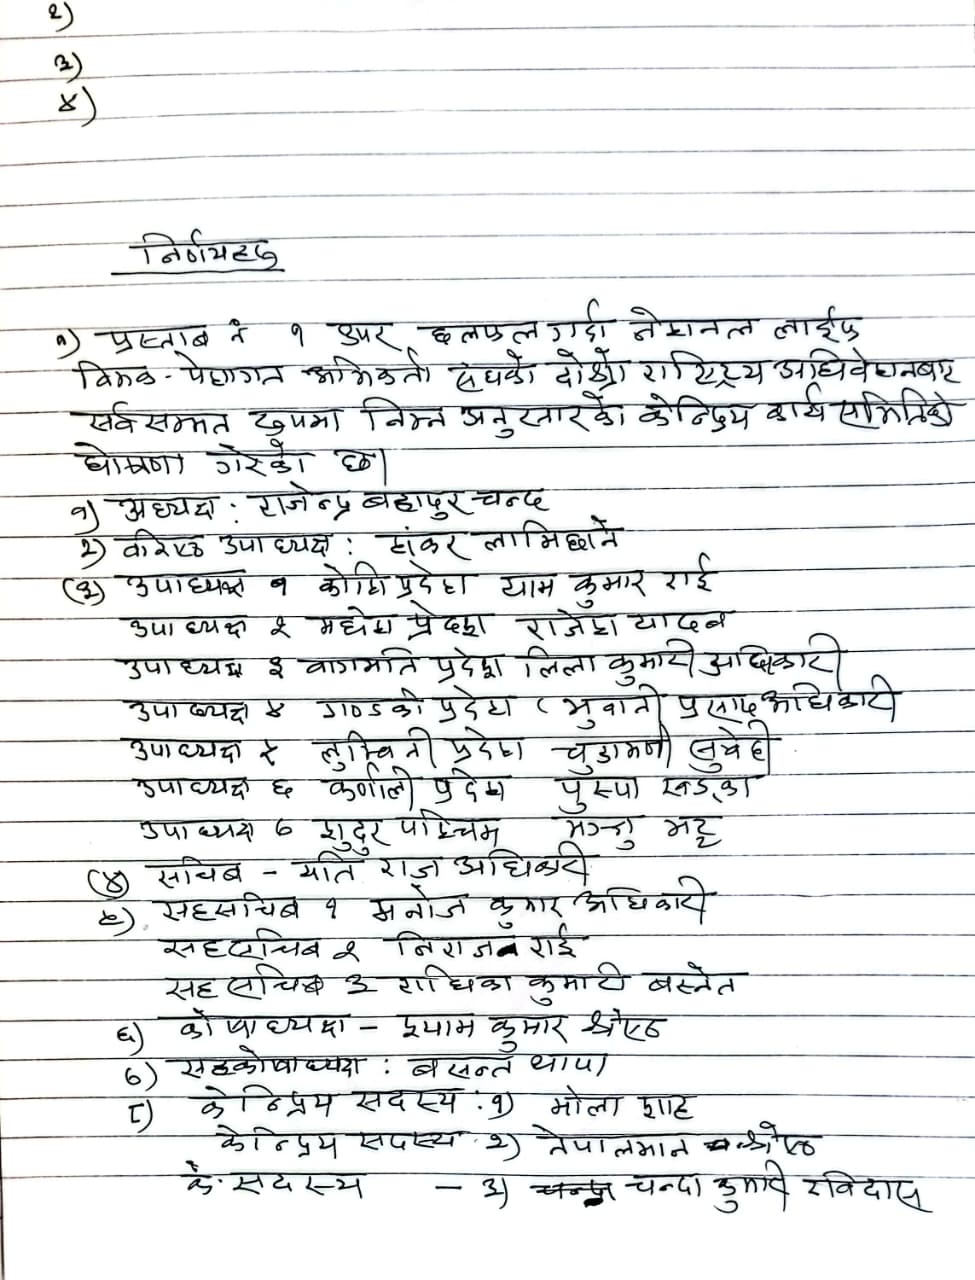 २)
३)
४)
निर्णयहरु
१) प्रस्ताब नं १ उपर छलफल गर्दा नेशनल लाईफ
बिमक पेशागत अभिकर्ता संघको दोश्रो राष्ट्रिय अधिवेशनबाट
सर्वसम्मत रुपमा निम्न अनुसारको केन्द्रिय कार्य समितिको
घोषणा गरेको छ।
१) अध्यक्ष : राजेन्द्र बहादुर चन्द
२) वरिष्ठ उपाध्यक्ष : शंकर लामिछाने
(३) उपाध्यक्ष १ कोशि प्रदेश याम कुमार राई
उपाध्यक्ष २ मधेश प्रदेश राजेश यादब
उपाध्यक्ष ३ वागमति प्रदेश लिला कुमारी अधिकारी
उपाध्यक्ष ४ गण्डकी प्रदेश ( भुवानी प्रसाद अधिकारी
उपाध्यक्ष ५ लुम्बिनी प्रदेश चुडामणी सुवेदी
उपाध्यक्ष ६ कर्णाली प्रदेश पुस्पा खड्का
उपाध्यक्ष ७ शुदुर पश्चिम मञ्जु भट्ट
(४) सचिब – यति राज अधिकारी
५) सहसचिब १ मनोज कुमार अधिकारी
सहसचिब २ निराजन राई
सहसचिब ३ राधिका कुमारी बस्नेत
६) कोषाध्यक्ष – श्याम कुमार श्रेष्ठ
७) सहकोषाध्यक्ष : बसन्त थापा
८) केन्द्रिय सदस्य : १) भोला शाह
केन्द्रिय सदस्य २) नेपालमान श्रेष्ठ
के. सदस्य – ३) चन्दा कुमारी रविदास